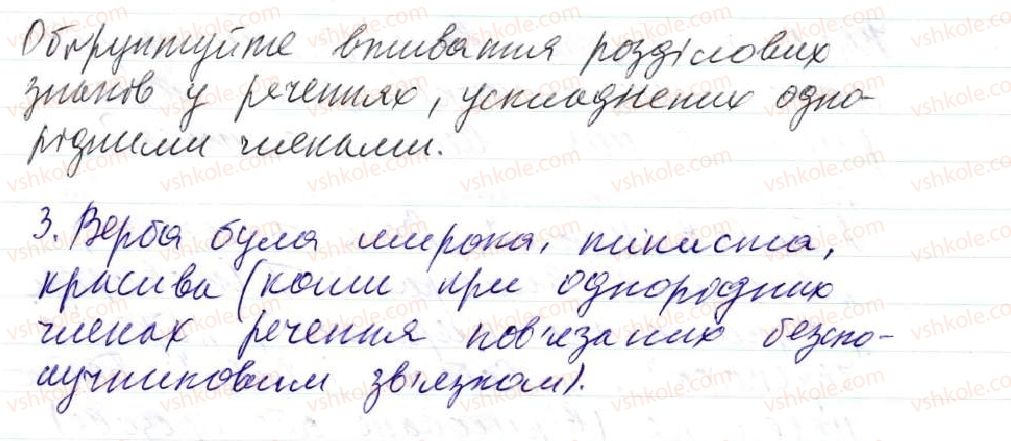 Обґрунтуйте вживання розділових
знаків у реченнях, ускладнених одно-
рідними членами.
3. Верба була широка, тіниста,
красива (коми при однорідних
членах речення пов'язаних безспо-
лучниковим зв'язком).